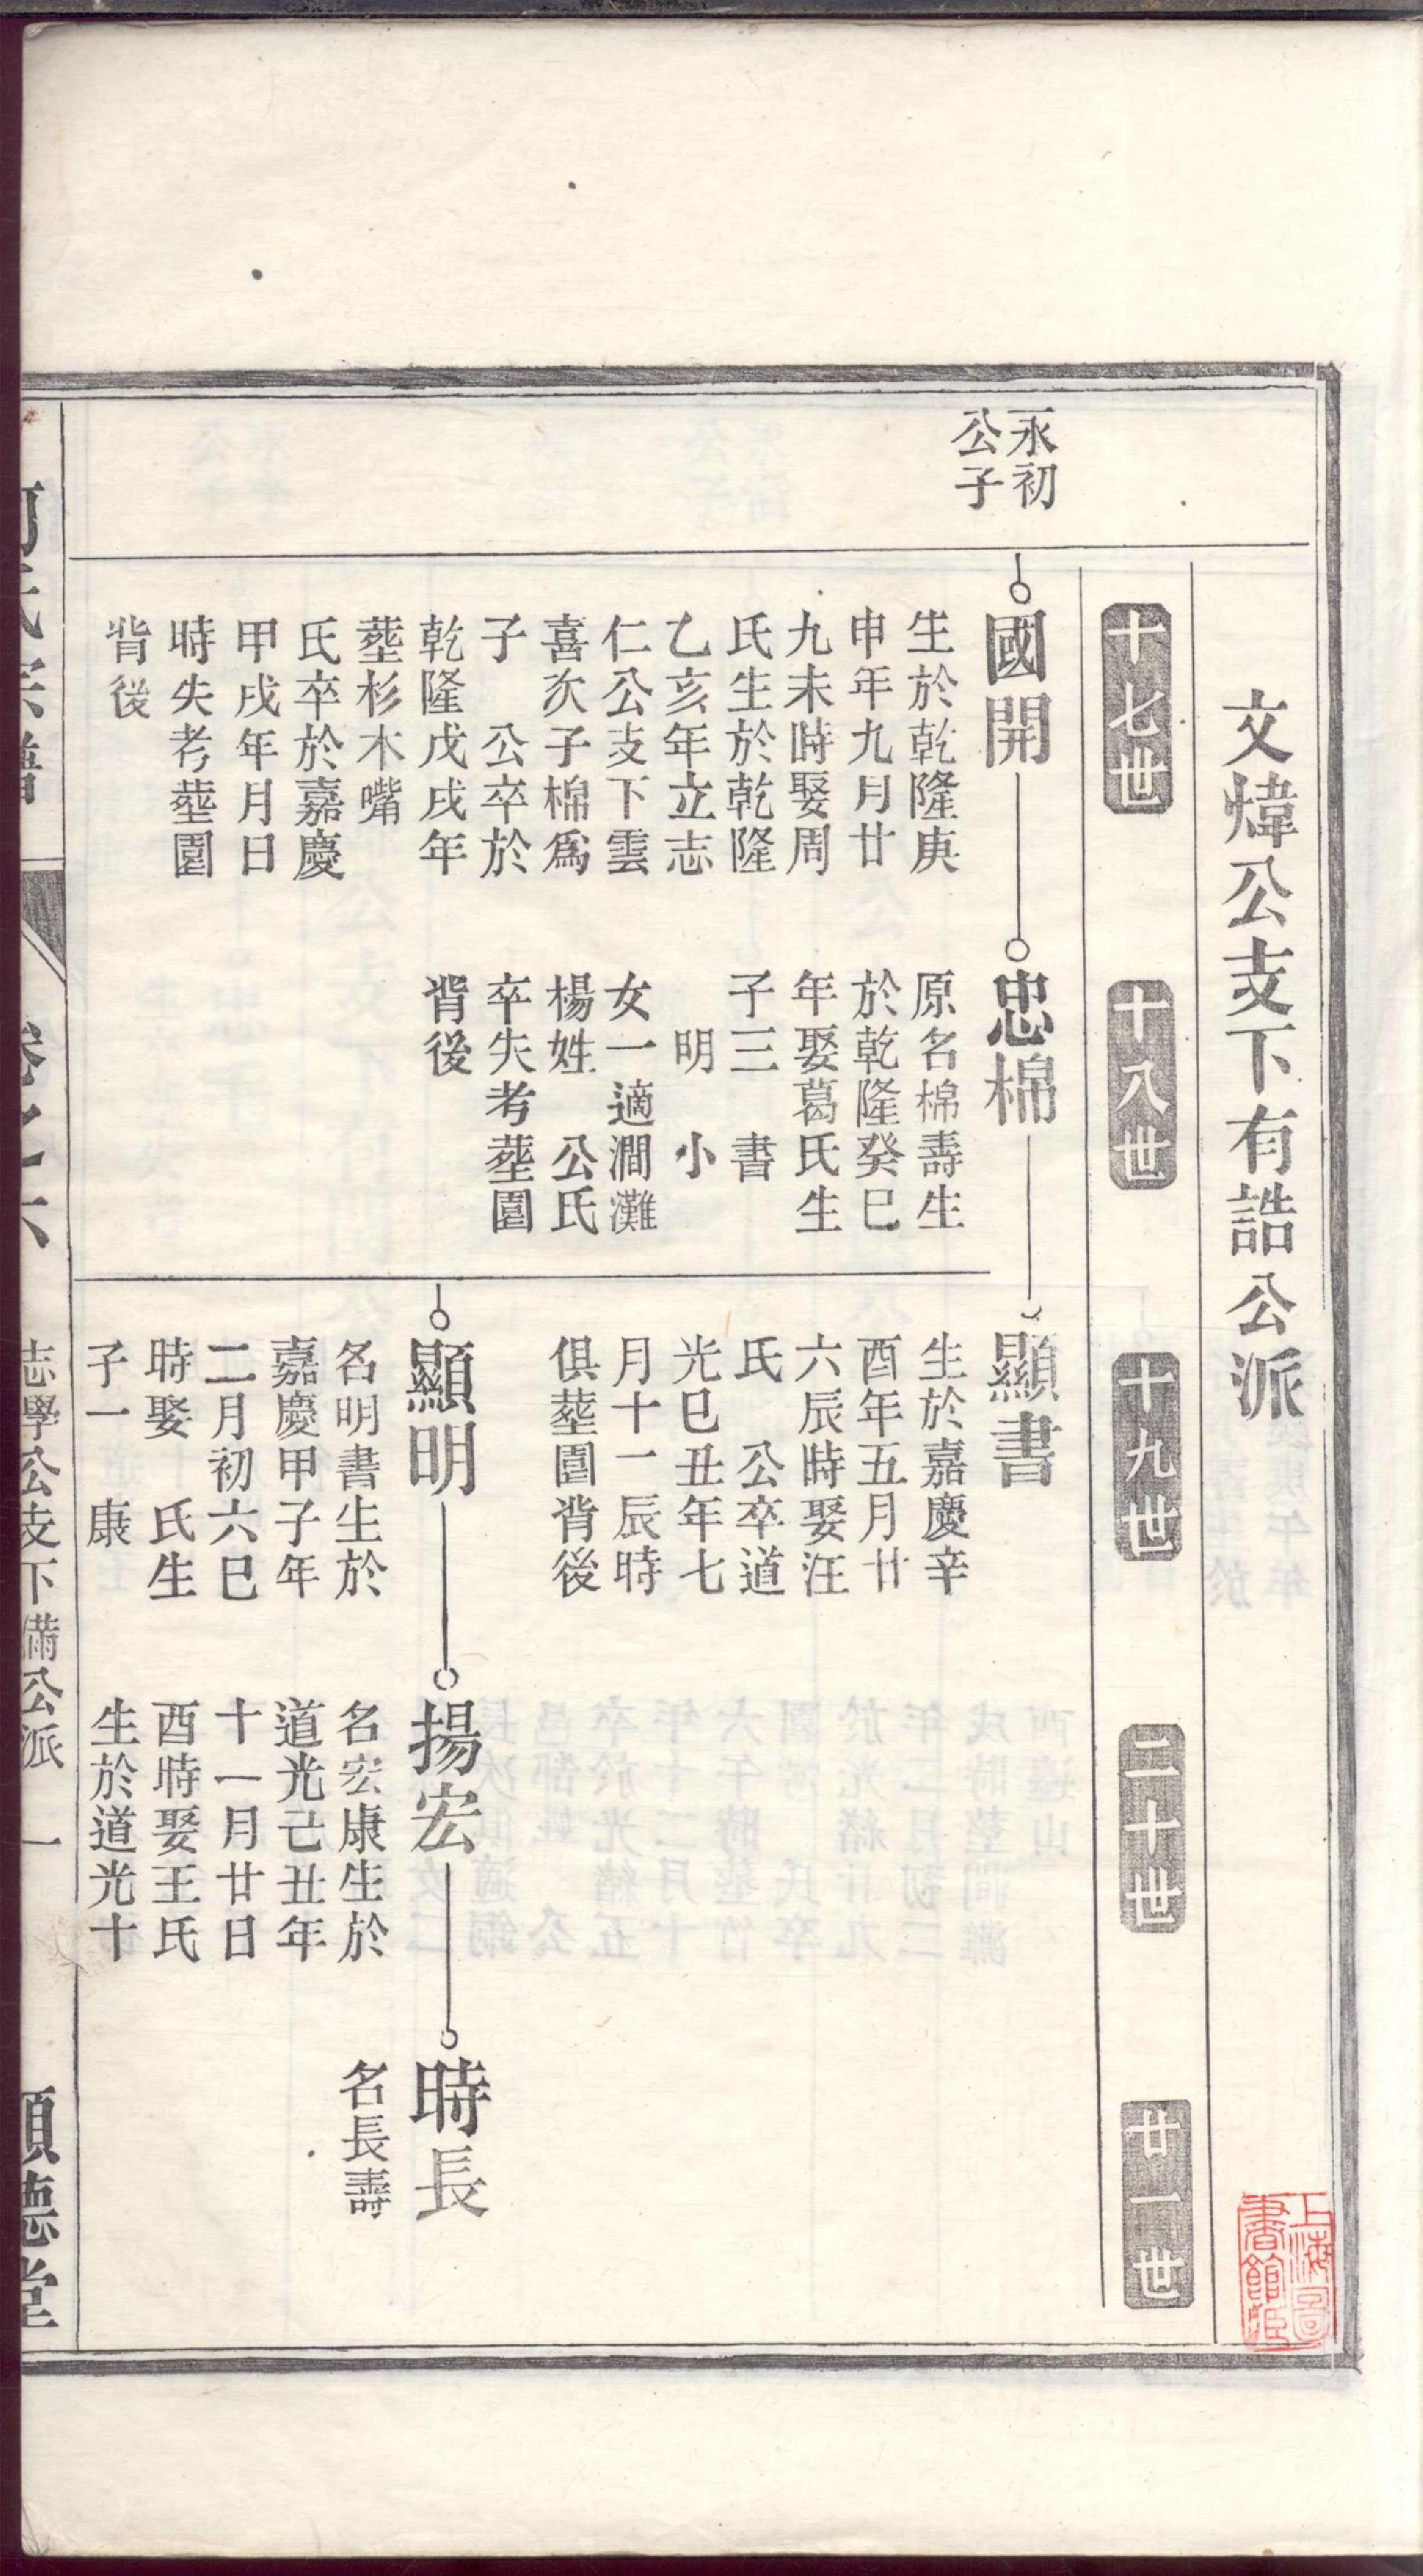 文煒公支下有誥公派
十七世
十八世
十九世
二十世
廿一世
永初
公子
國開
生於乾隆庚
申年九月廿
九未時娶周
氏生於乾隆
乙亥年立志
仁公支下雲
喜次子棉爲
子 公卒於
乾隆戊戌年
塟杉木嘴
氏卒於嘉慶
甲戌年月日
時失考塟園
背後
忠棉
原名棉壽生
於乾隆癸巳
年娶葛氏生
子三 書
明 小
女一適澗灘
楊姓 公氏
卒失考塟園
背後
顯書
生於嘉慶辛
酉年五月廿
六辰時娶汪
氏 公卒道
光巳丑年七
月十一辰時
俱塟園背後
顯明
名明書生於
嘉慶甲子年
二月初六巳
時娶 氏生
子一 康
揚宏
名宏康生於
道光己丑年
十一月廿日
酉時娶王氏
生於道光十
時長
名長壽
卷之六
志學公支下備公派 一
德堂
上海圖
書館藏